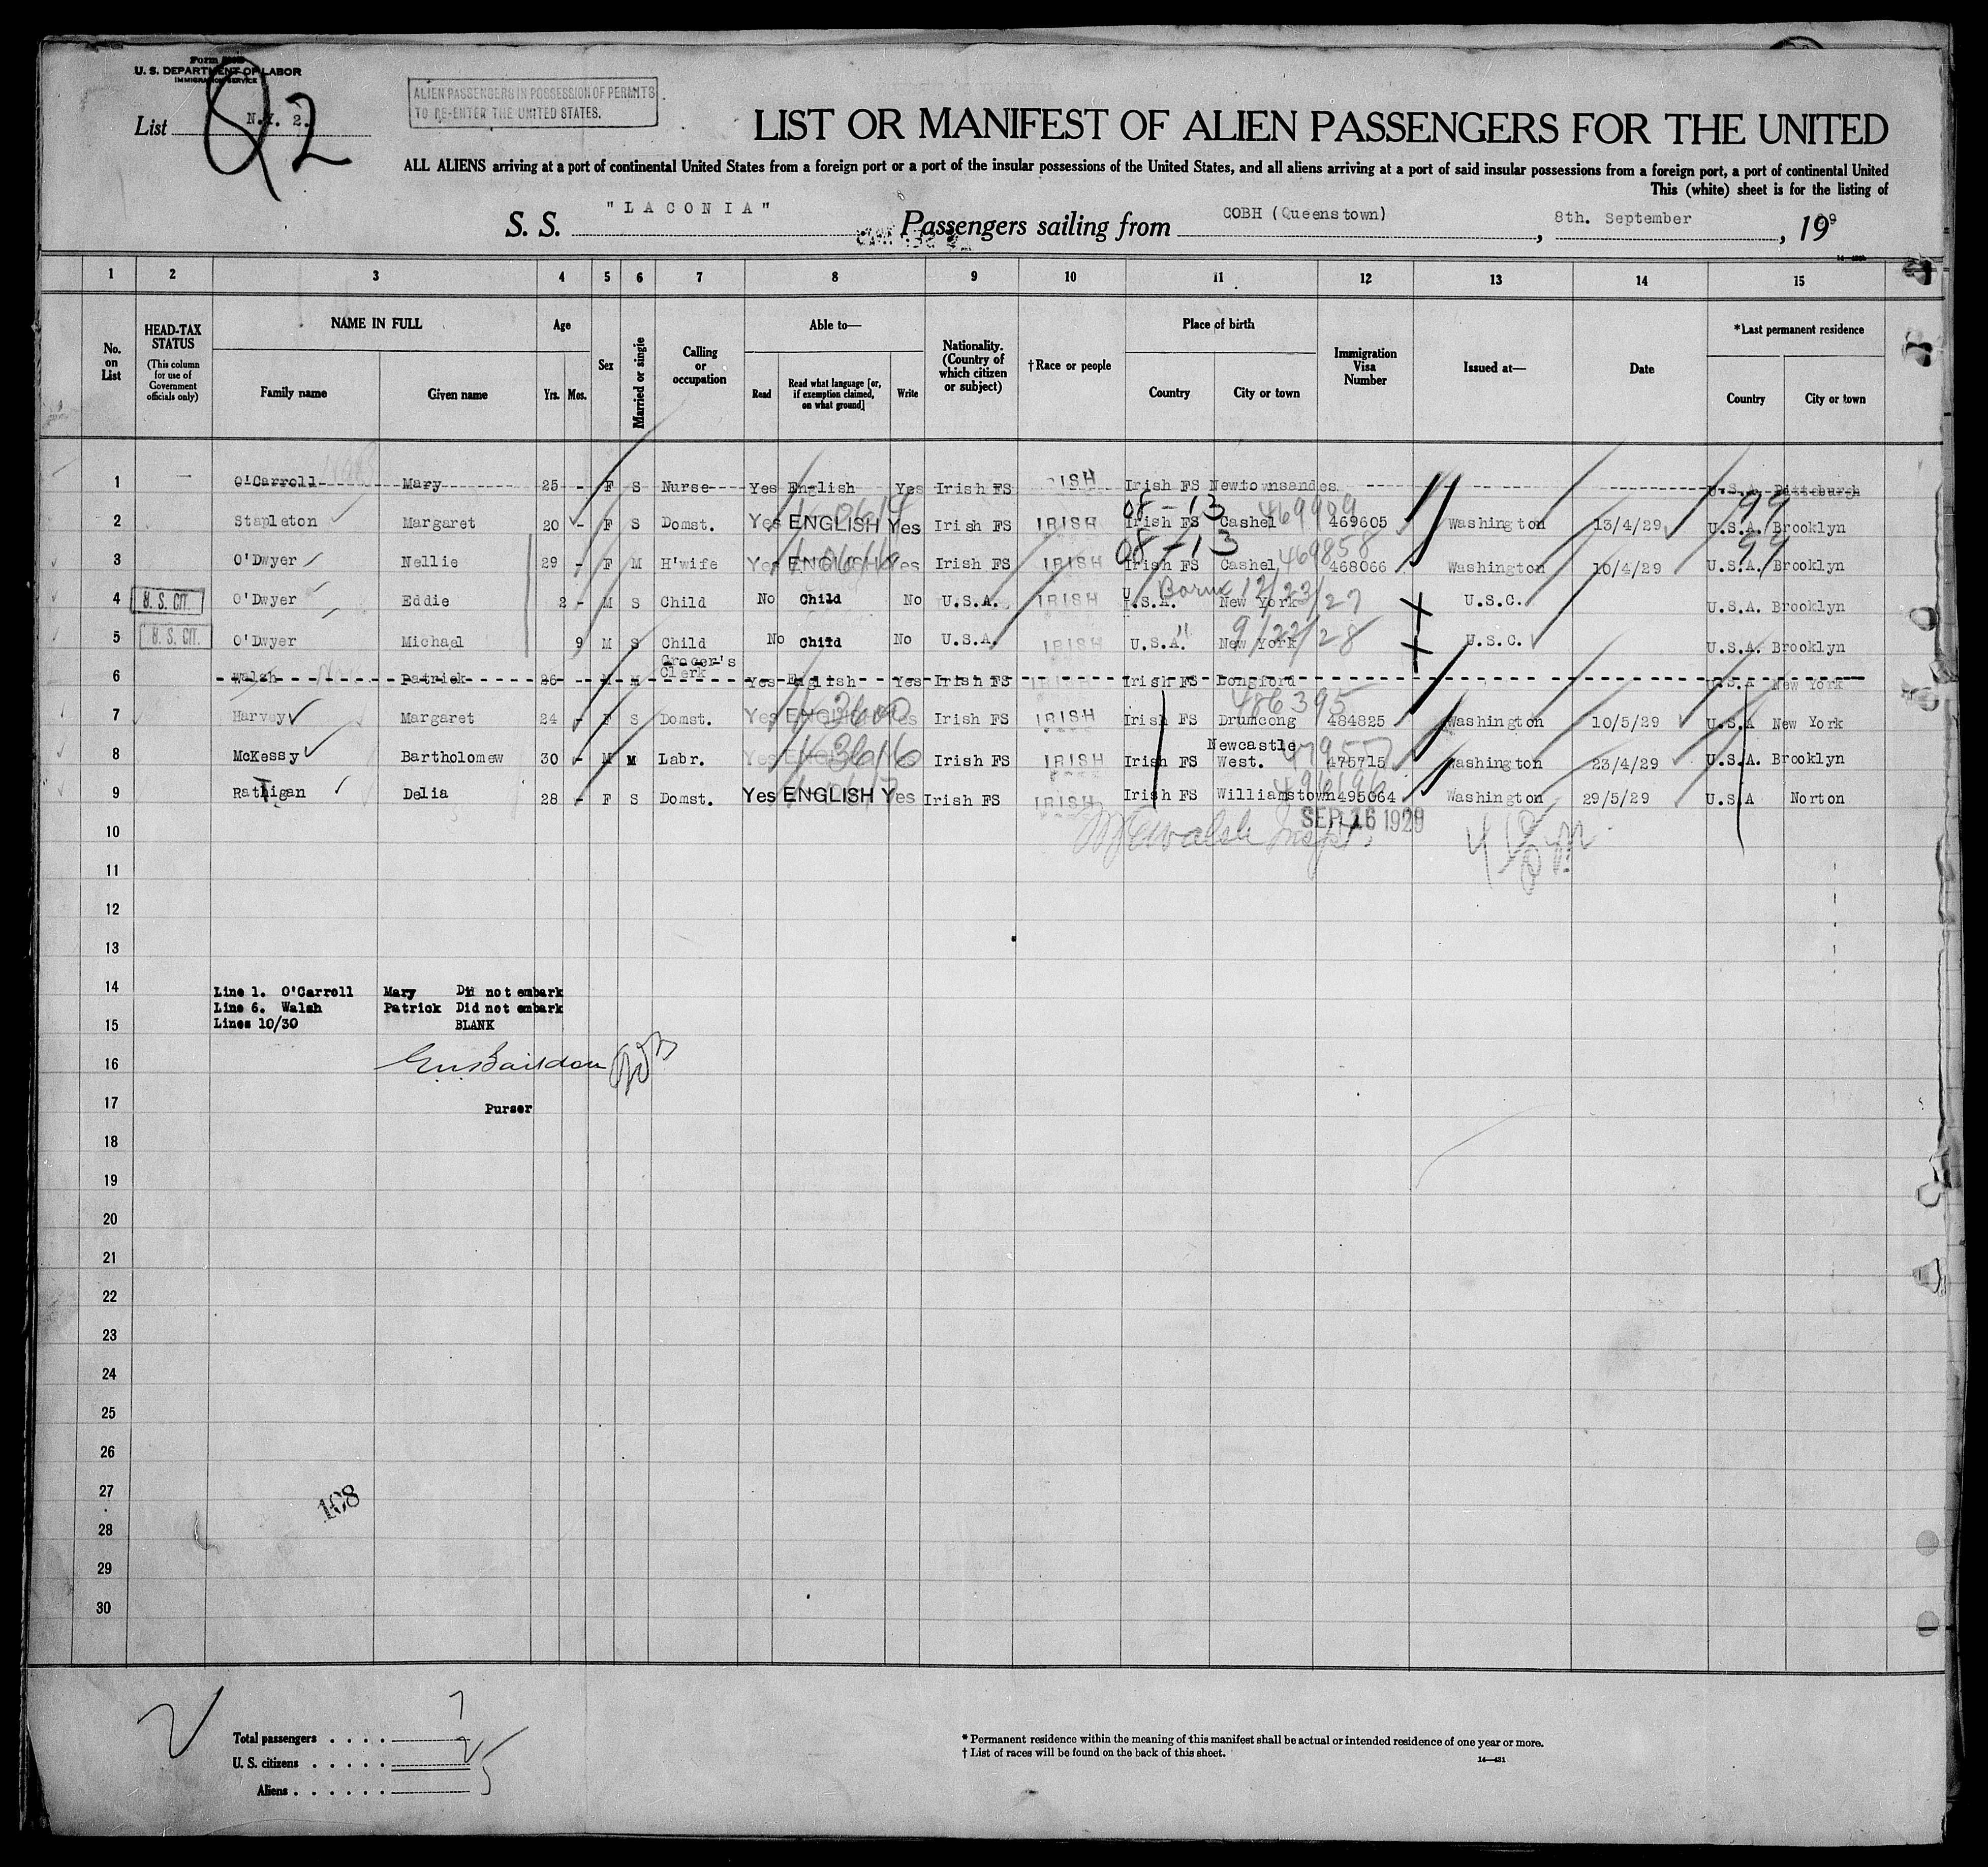 Form
U. S. DEPARTMENT OF LABOR
IMMIGRATION SERVICE
List N.Y. 2.
Q2
ALIEN PASSENGERS IN POSSESSION OF PERMITS
TO RE-ENTER THE UNITED STATES.
LIST OR MANIFEST OF ALIEN PASSENGERS FOR THE UNITED
ALL ALIENS arriving at a port of continental United States from a foreign port or a port of the insular possessions of the United States, and all aliens arriving at a port of said insular possessions from a foreign port, a port of continental United
This (white) sheet is for the listing of
S. S. "LACONIA" Passengers sailing from COBH (Queenstown), 8th. September, 19 9
1 2 3 4 5 6 7 8 9 10 11 12 13 14 15
No. on List
HEAD-TAX STATUS
(This column for use of Government officials only)
NAME IN FULL
Family name Given name
Age
Yrs. Mos.
Sex
Married or single
Calling or occupation
Able to—
Read
Read what language [or, if exemption claimed, on what ground]
Write
Nationality. (Country of which citizen or subject)
†Race or people
Place of birth
Country City or town
Immigration Visa Number
Issued at—
Date
*Last permanent residence
Country City or town
1 O'Carroll Mary 25 - F S Nurse Yes English Yes Irish FS IRISH Irish FS Newtownsandes U.S.A. Pittsburgh
08-13 469909 99
2 Stapleton Margaret 20 - F S Domst. Yes ENGLISH Yes Irish FS IRISH Irish FS Cashel 469605 Washington 13/4/29 U.S.A. Brooklyn
08-13 469858 99
3 O'Dwyer Nellie 29 - F M H'wife Yes ENGLISH Yes Irish FS IRISH Irish FS Cashel 468066 Washington 10/4/29 U.S.A. Brooklyn
Born 12/23/27
4 U. S. CIT. O'Dwyer Eddie 2 - M S Child No Child No U.S.A. IRISH U.S.A. New York U.S.C. U.S.A. Brooklyn
" 9/22/28
5 U. S. CIT. O'Dwyer Michael 9 M S Child No Child No U.S.A. IRISH U.S.A. New York U.S.C. U.S.A. Brooklyn
6 Walsh Patrick 26 - M M Grocer's Clerk Yes English Yes Irish FS Irish FS Longford U.S.A New York
486395
7 Harvey Margaret 24 - F S Domst. Yes ENGLISH Yes Irish FS IRISH Irish FS Drumcong 484825 Washington 10/5/29 U.S.A New York
8 McKessy Bartholomew 30 - M M Labr. Yes ENGLISH Irish FS IRISH Irish FS Newcastle West. 475715 Washington 23/4/29 U.S.A. Brooklyn
496196
9 Rathigan Delia 28 - F S Domst. Yes ENGLISH Yes Irish FS IRISH Irish FS Williamstown 495064 Washington 29/5/29 U.S.A Norton
SEP 16 1929
Walsh Inspt.
10
11
12
13
14 Line 1. O'Carroll Mary Did not embark
Line 6. Walsh Patrick Did not embark
15 Lines 10/30 BLANK
16
17 Purser
18
19
20
21
22
23
24
25
26
27
108
28
29
30
Total passengers . . . . 7
U. S. citizens . . . . . 2
Aliens . . . . . . 5
* Permanent residence within the meaning of this manifest shall be actual or intended residence of one year or more.
† List of races will be found on the back of this sheet.
14—421